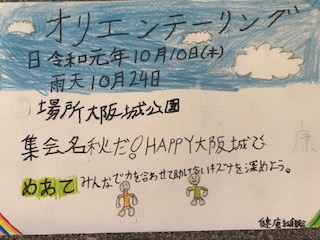 オリエンテーリング
日 令和元年10月10日(木)
雨天10月24日
場所大阪城公園
集会名秋だ!HAPPY大阪城
めあて みんなで力を合わせて助け合いキズナを深めよう。